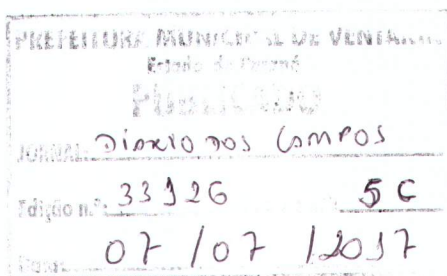 PREFEITURA MUNICIPAL DE VENTANIA
Estado do Paraná
PUBLICADO
JORNAL: DIÁRIO DOS CAMPOS
Edição n.º: 33126 5C
Data: 07/07/2017